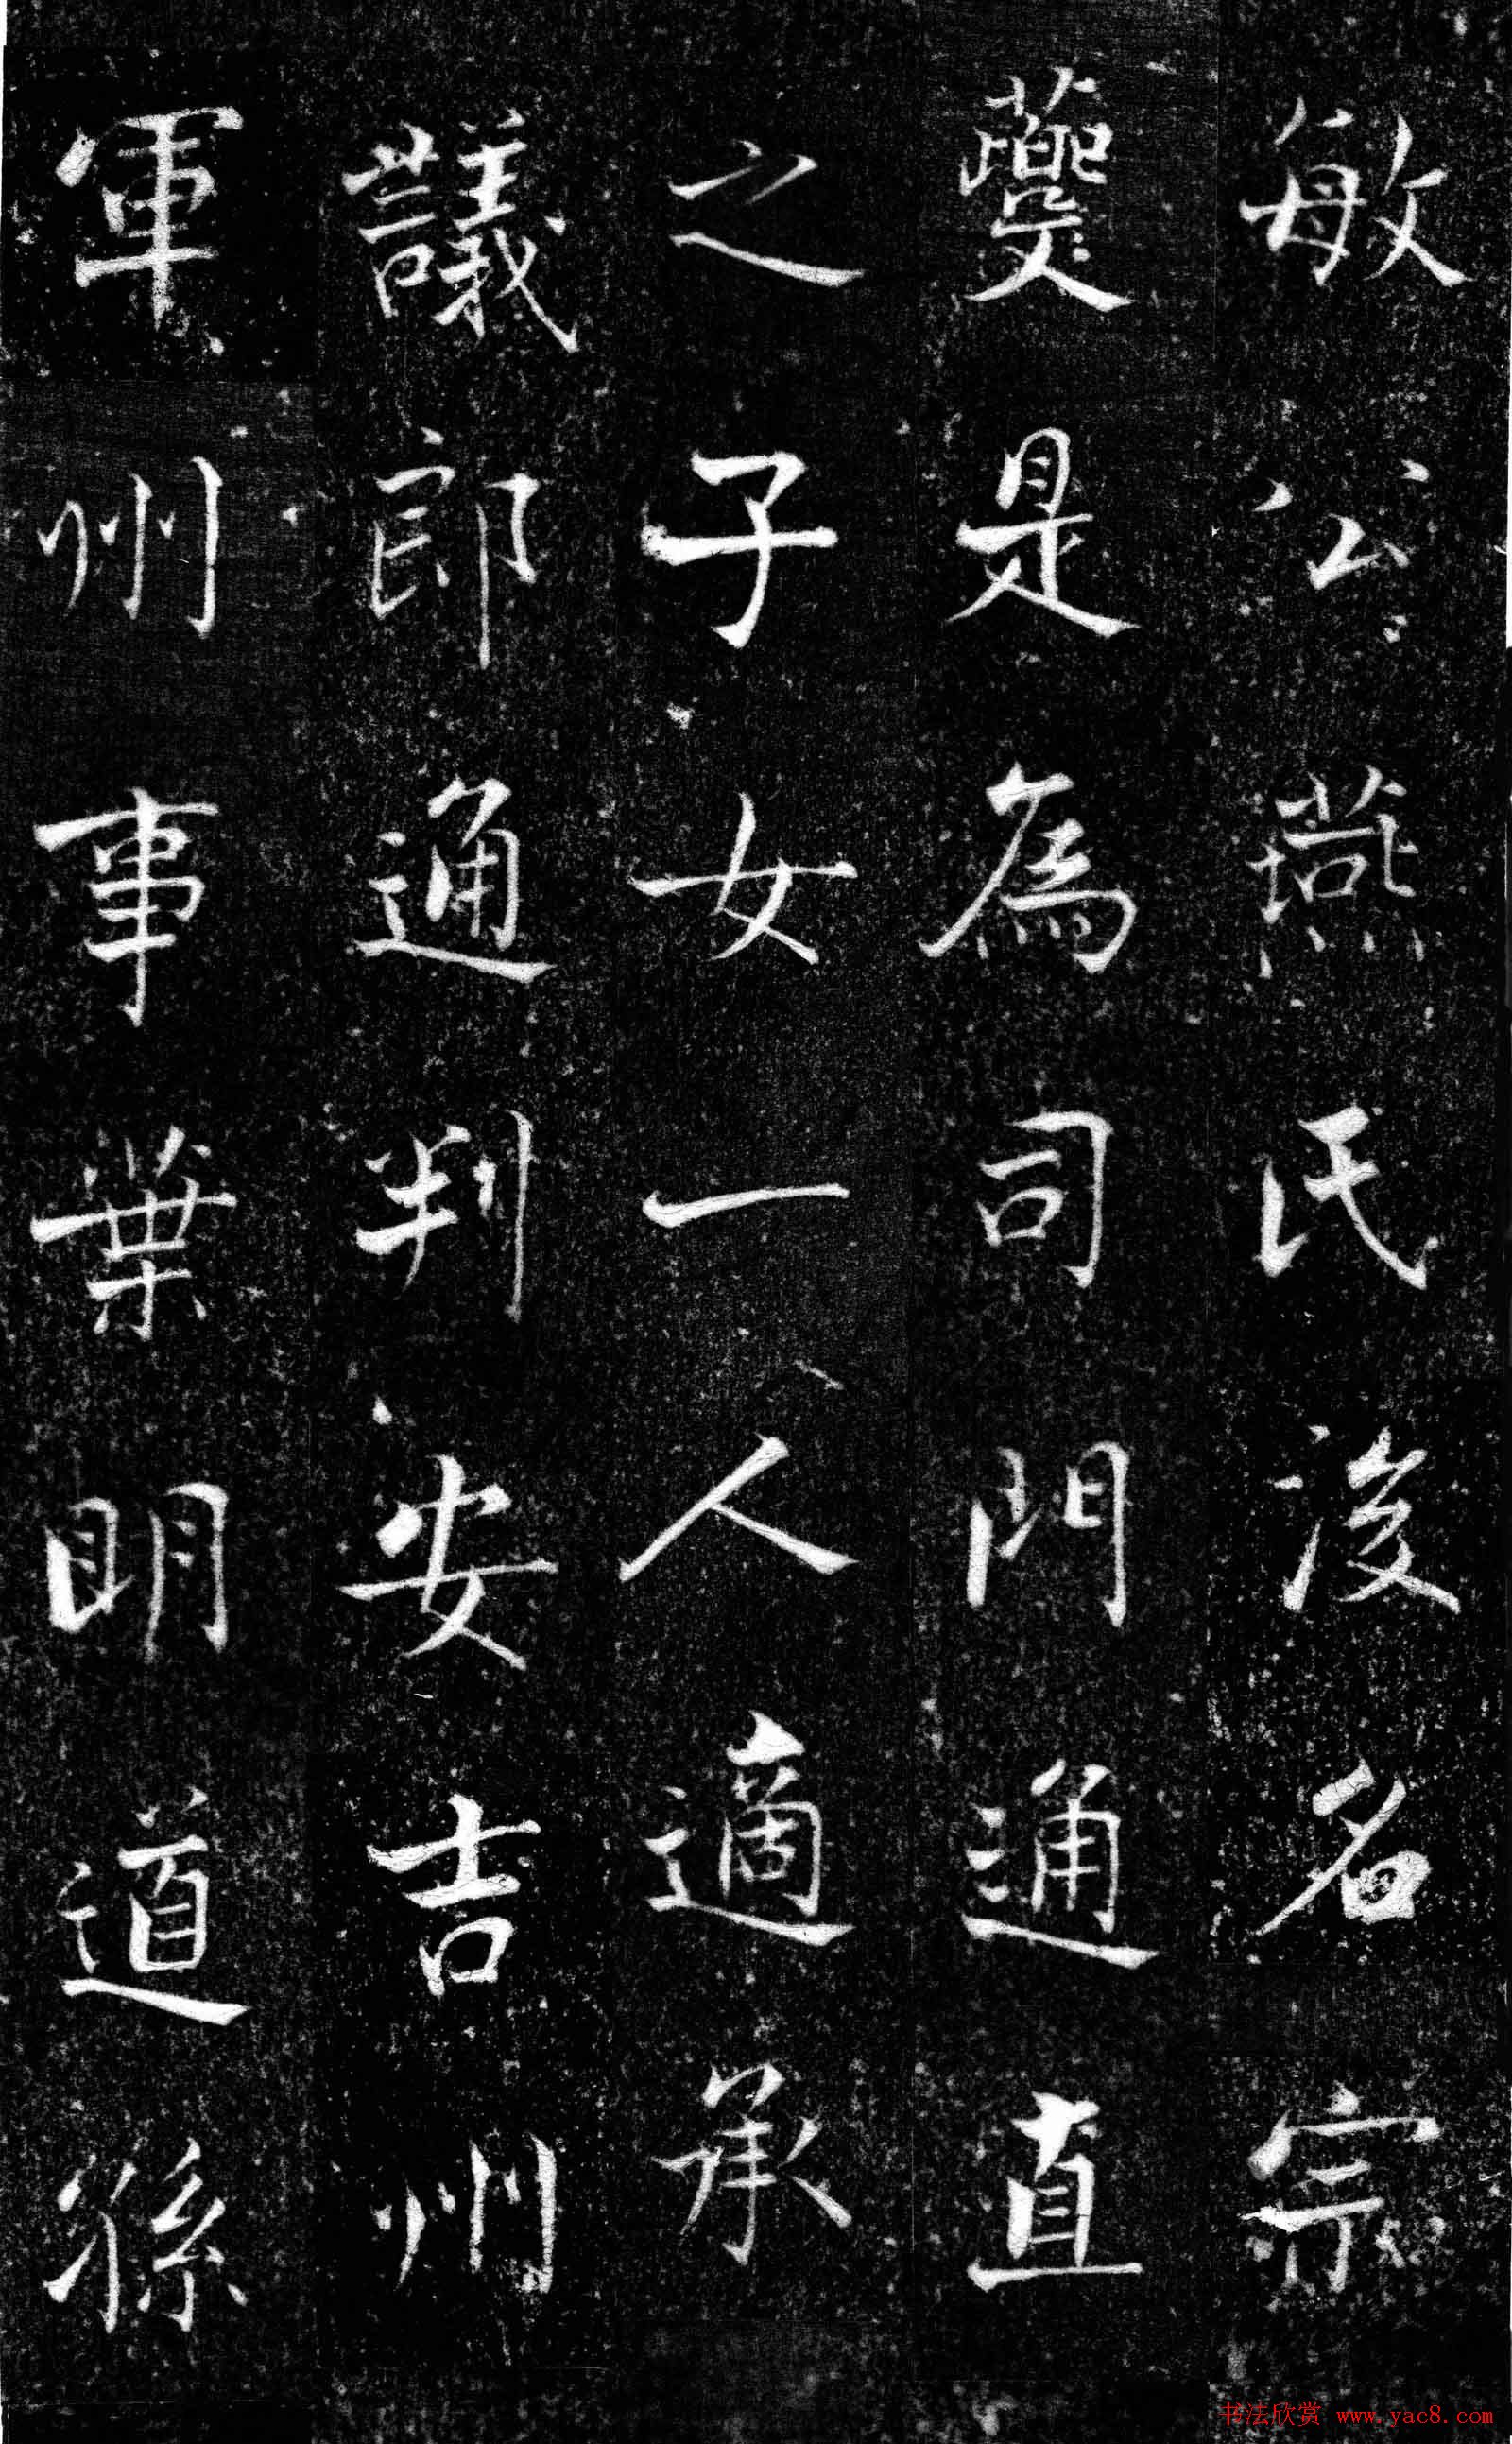 敏公燕氏後名宗
蘷是為司門通直
之子女一人適承
議郎通判安吉州
軍州事葉明道孫
书法欣赏 www.yac8.com